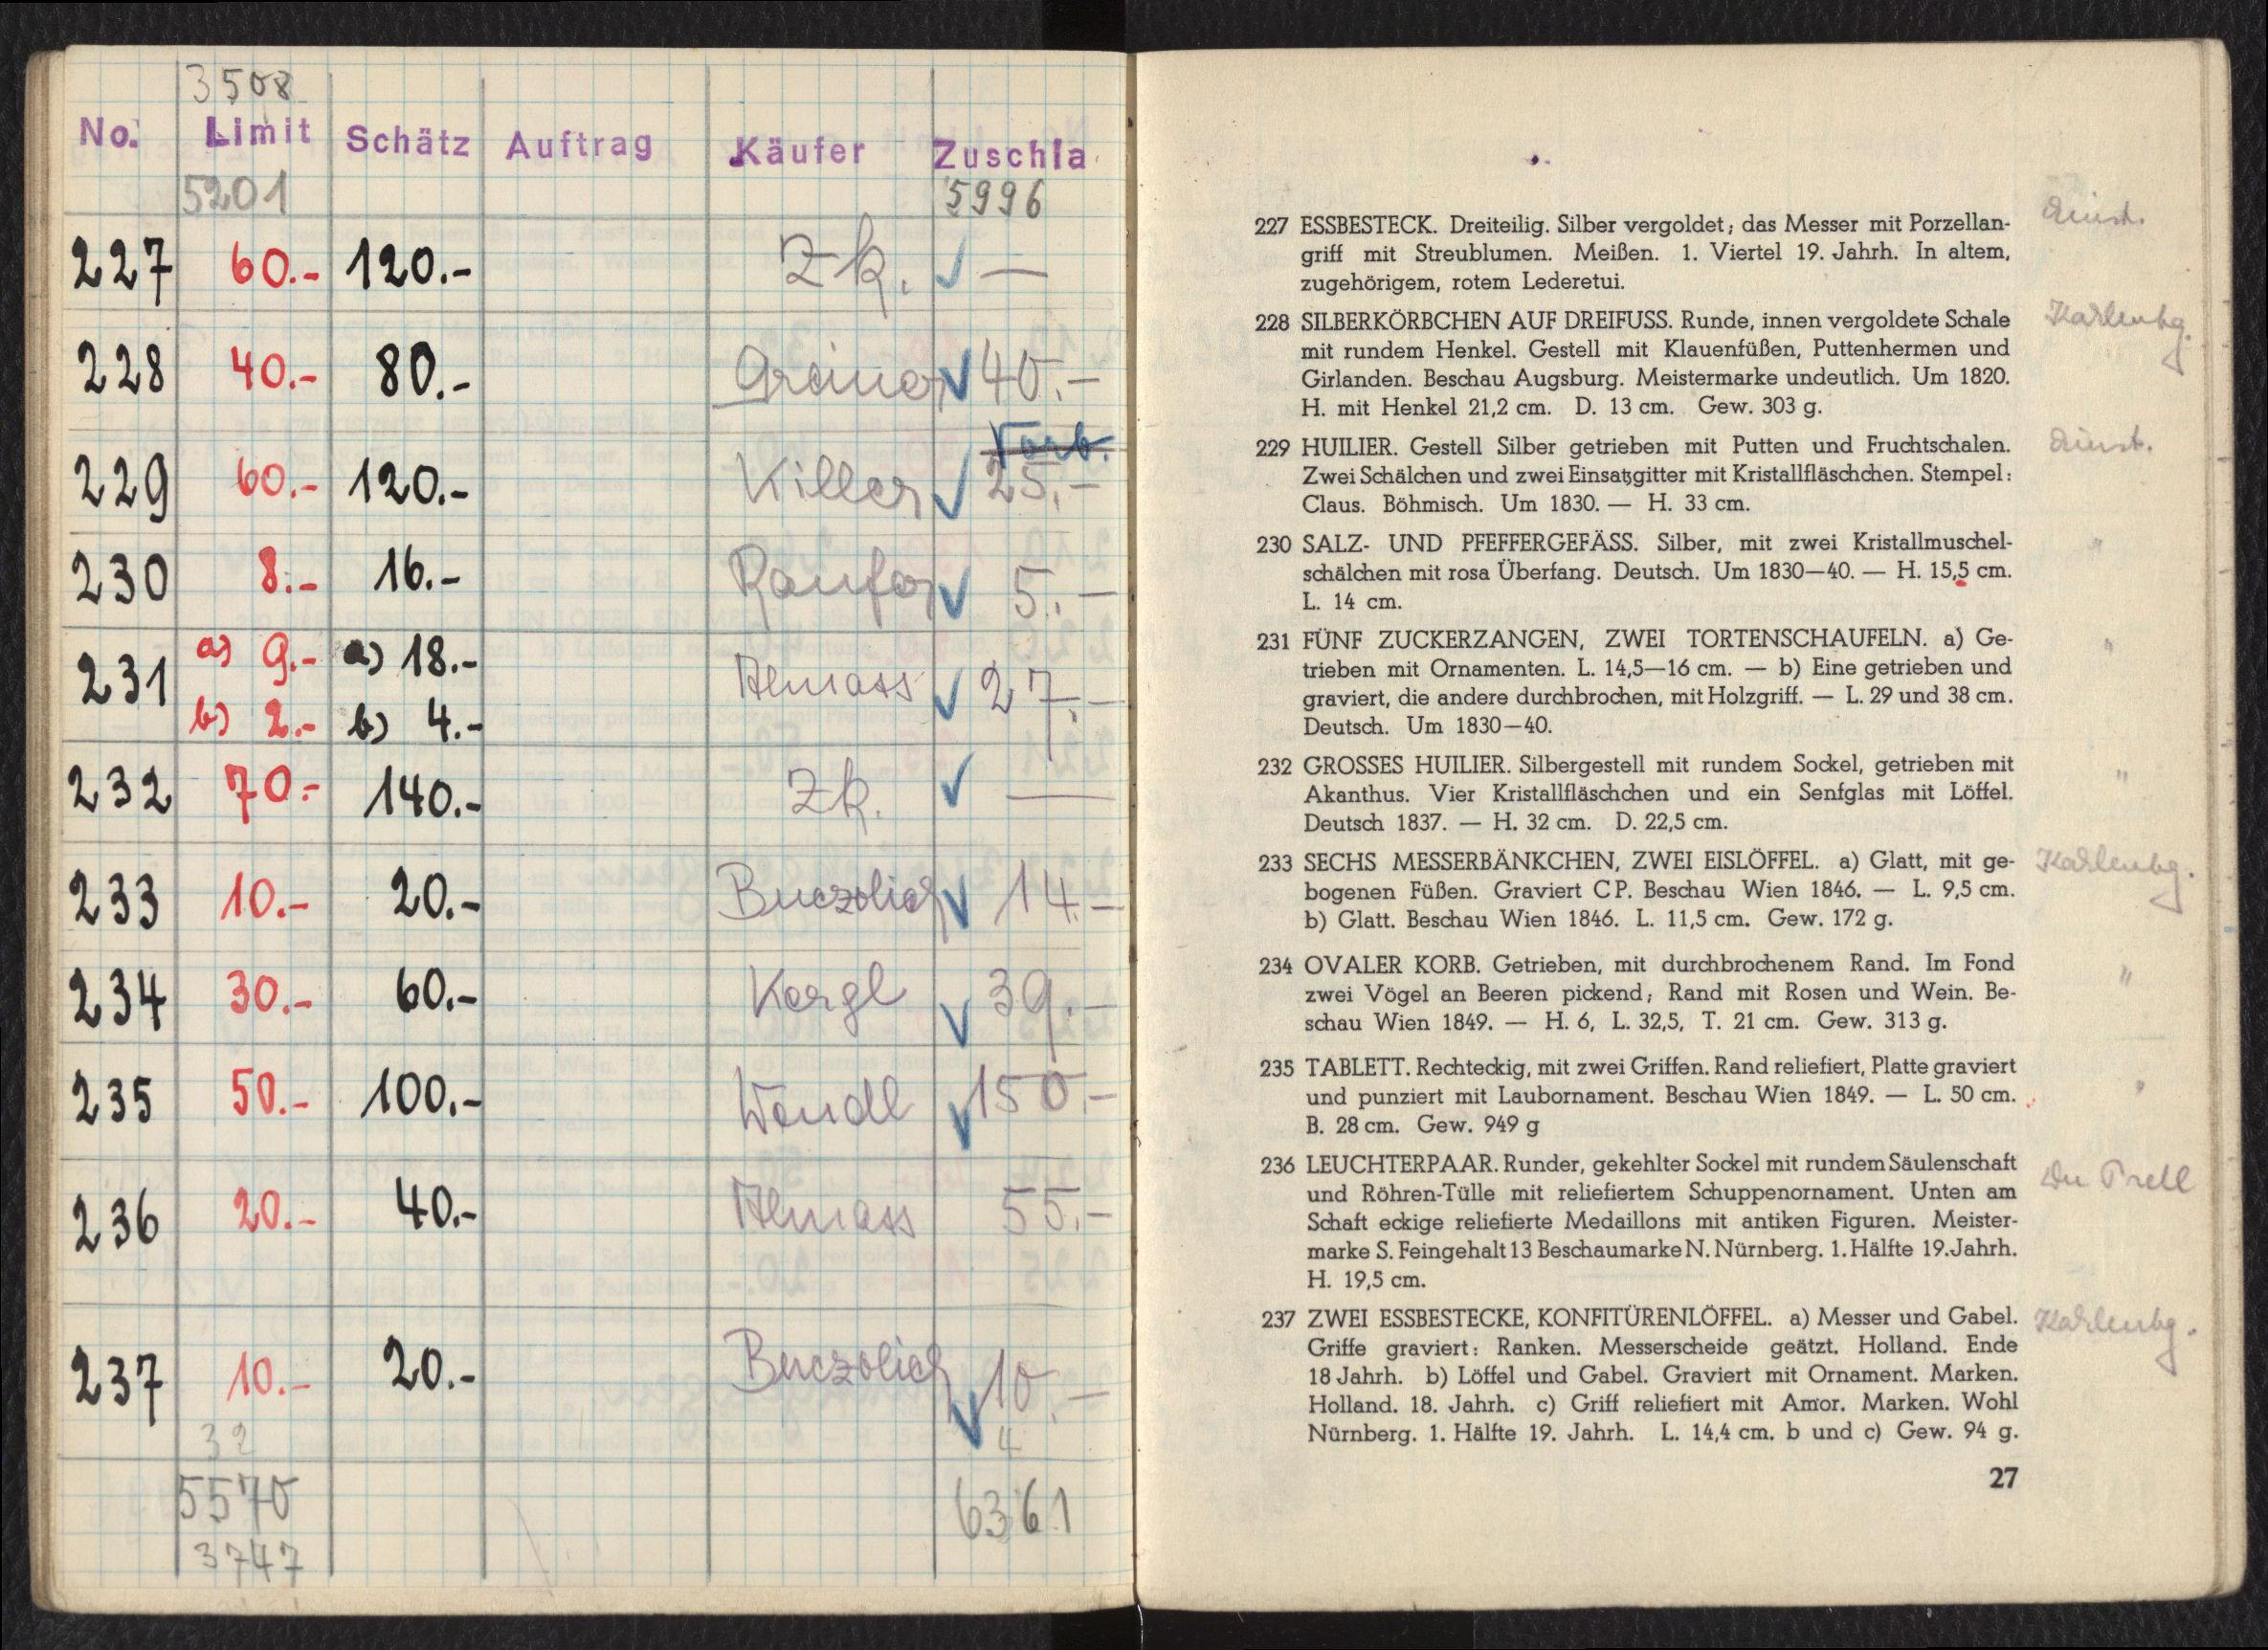 3508
No. Limit Schätz Auftrag Käufer Zuschla
5201 5996
227 60.- 120.- Zk. ✓ —
228 40.- 80.- Greiner ✓ 40.-
Vorb.
229 60.- 120.- Killer ✓ 25.-
230 8.- 16.- ✓ 5.-
a) 9.- a) 18.-
231 Almass ✓ 27.-
b) 2.- b) 4.-
232 70.- 140.- Zk. ✓ —
233 10.- 20.- Buczolich ✓ 14.-
234 30.- 60.- Kergl ✓ 39.-
235 50.- 100.- Wendl ✓ 150.-
236 20.- 40.- Almass 55.-
237 10.- 20.- Buczolich ✓ 10.-
32 4
5570 6361
3747
227 ESSBESTECK. Dreiteilig. Silber vergoldet; das Messer mit Porzellan-
griff mit Streublumen. Meißen. 1. Viertel 19. Jahrh. In altem,
zugehörigem, rotem Lederetui.
228 SILBERKÖRBCHEN AUF DREIFUSS. Runde, innen vergoldete Schale
mit rundem Henkel. Gestell mit Klauenfüßen, Puttenhermen und
Girlanden. Beschau Augsburg. Meistermarke undeutlich. Um 1820.
H. mit Henkel 21,2 cm. D. 13 cm. Gew. 303 g.
229 HUILIER. Gestell Silber getrieben mit Putten und Fruchtschalen.
Zwei Schälchen und zwei Einsatzgitter mit Kristallfläschchen. Stempel:
Claus. Böhmisch. Um 1830. — H. 33 cm.
230 SALZ- UND PFEFFERGEFÄSS. Silber, mit zwei Kristallmuschel- "
schälchen mit rosa Überfang. Deutsch. Um 1830—40. — H. 15,5 cm.
L. 14 cm.
231 FÜNF ZUCKERZANGEN, ZWEI TORTENSCHAUFELN. a) Ge- "
trieben mit Ornamenten. L. 14,5—16 cm. — b) Eine getrieben und
graviert, die andere durchbrochen, mit Holzgriff. — L. 29 und 38 cm.
Deutsch. Um 1830—40.
232 GROSSES HUILIER. Silbergestell mit rundem Sockel, getrieben mit "
Akanthus. Vier Kristallfläschchen und ein Senfglas mit Löffel.
Deutsch 1837. — H. 32 cm. D. 22,5 cm.
233 SECHS MESSERBÄNKCHEN, ZWEI EISLÖFFEL. a) Glatt, mit ge-
bogenen Füßen. Graviert CP. Beschau Wien 1846. — L. 9,5 cm.
b) Glatt. Beschau Wien 1846. L. 11,5 cm. Gew. 172 g.
234 OVALER KORB. Getrieben, mit durchbrochenem Rand. Im Fond "
zwei Vögel an Beeren pickend; Rand mit Rosen und Wein. Be-
schau Wien 1849. — H. 6, L. 32,5, T. 21 cm. Gew. 313 g.
235 TABLETT. Rechteckig, mit zwei Griffen. Rand reliefiert, Platte graviert "
und punziert mit Laubornament. Beschau Wien 1849. — L. 50 cm.
B. 28 cm. Gew. 949 g
236 LEUCHTERPAAR. Runder, gekehlter Sockel mit rundem Säulenschaft Du Prell
und Röhren-Tülle mit reliefiertem Schuppenornament. Unten am
Schaft eckige reliefierte Medaillons mit antiken Figuren. Meister-
marke S. Feingehalt 13 Beschaumarke N. Nürnberg. 1. Hälfte 19. Jahrh.
H. 19,5 cm.
237 ZWEI ESSBESTECKE, KONFITÜRENLÖFFEL. a) Messer und Gabel.
Griffe graviert: Ranken. Messerscheide geätzt. Holland. Ende
18 Jahrh. b) Löffel und Gabel. Graviert mit Ornament. Marken.
Holland. 18. Jahrh. c) Griff reliefiert mit Amor. Marken. Wohl
Nürnberg. 1. Hälfte 19. Jahrh. L. 14,4 cm. b und c) Gew. 94 g.
27